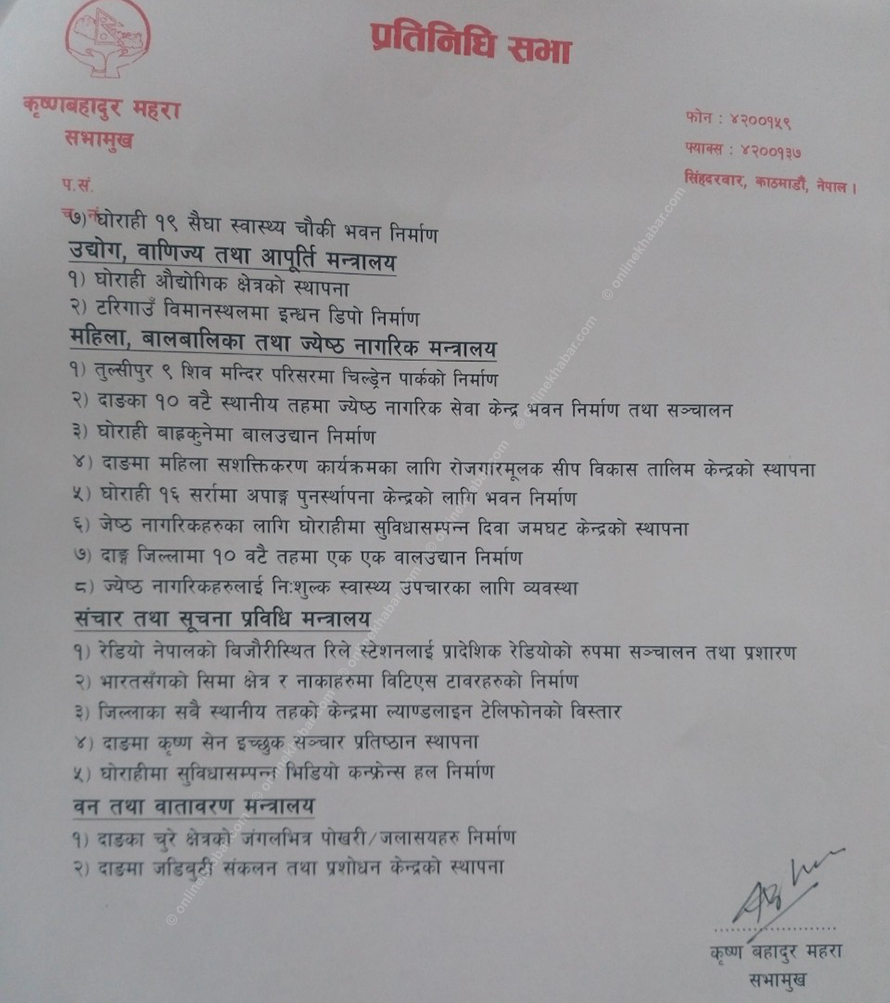 प्रतिनिधि सभा
कृष्णबहादुर महरा
सभामुख
फोन : ४२००१५९
फ्याक्स : ४२००१३७
सिंहदरवार, काठमाडौं, नेपाल ।
प.सं.
७) घोराही १९ सैघा स्वास्थ्य चौकी भवन निर्माण
उद्योग, वाणिज्य तथा आपूर्ति मन्त्रालय
१) घोराही औद्योगिक क्षेत्रको स्थापना
२) टरिगाउँ विमानस्थलमा इन्धन डिपो निर्माण
महिला, बालबालिका तथा ज्येष्ठ नागरिक मन्त्रालय
१) तुल्सीपुर ९ शिव मन्दिर परिसरमा चिल्ड्रेन पार्कको निर्माण
२) दाङका १० वटै स्थानीय तहमा ज्येष्ठ नागरिक सेवा केन्द्र भवन निर्माण तथा सञ्चालन
३) घोराही बाह्रकुनेमा बालउद्यान निर्माण
४) दाङमा महिला सशक्तिकरण कार्यक्रमका लागि रोजगारमूलक सीप विकास तालिम केन्द्रको स्थापना
५) घोराही १६ सर्रामा अपाङ्ग पुनर्स्थापना केन्द्रको लागि भवन निर्माण
६) जेष्ठ नागरिकहरुका लागि घोराहीमा सुविधासम्पन्न दिवा जमघट केन्द्रको स्थापना
७) दाङ्ग जिल्लामा १० वटै तहमा एक एक वालउद्यान निर्माण
८) ज्येष्ठ नागरिकहरुलाई नि:शुल्क स्वास्थ्य उपचारका लागि व्यवस्था
संचार तथा सूचना प्रविधि मन्त्रालय
१) रेडियो नेपालको बिजौरीस्थित रिले स्टेशनलाई प्रादेशिक रेडियोको रुपमा सञ्चालन तथा प्रशारण
२) भारतसँगको सिमा क्षेत्र र नाकाहरुमा विटिएस टावरहरुको निर्माण
३) जिल्लाका सबै स्थानीय तहको केन्द्रमा ल्याण्डलाइन टेलिफोनको विस्तार
४) दाङमा कृष्ण सेन इच्छुक सञ्चार प्रतिष्ठान स्थापना
५) घोराहीमा सुविधासम्पन्न भिडियो कन्फ्रेन्स हल निर्माण
वन तथा वातावरण मन्त्रालय
१) दाङका चुरे क्षेत्रको जंगलभित्र पोखरी/जलासयहरु निर्माण
२) दाङमा जडिबुटी संकलन तथा प्रशोधन केन्द्रको स्थापना
कृष्ण बहादुर महरा
सभामुख
© onlinekhabar.com © onlinekhabar.com © onlinekhabar.com © onlinekhabar.com